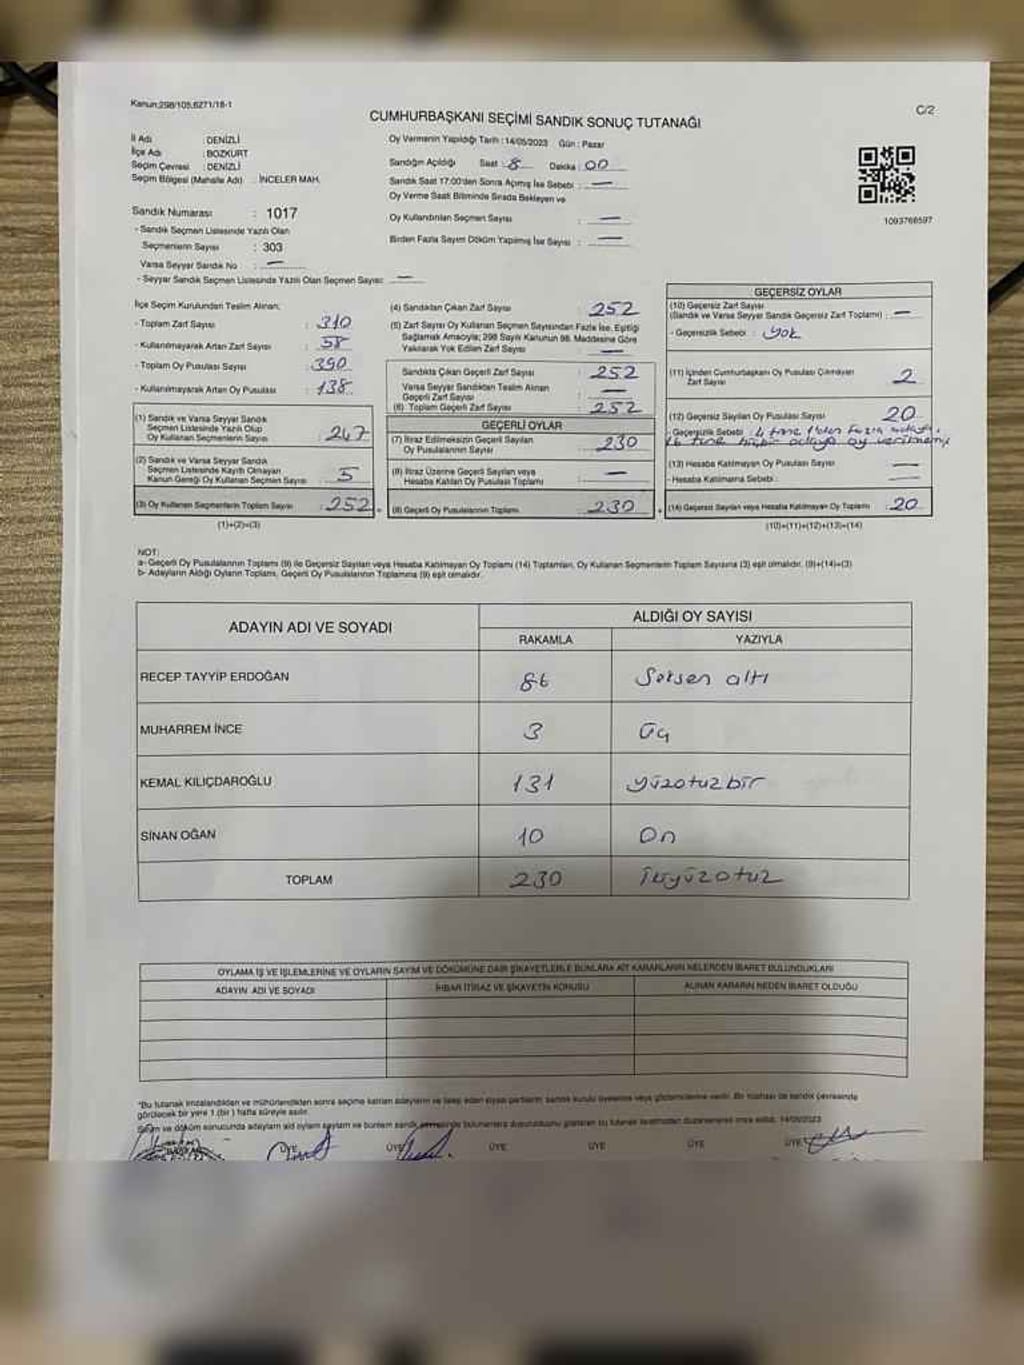 Kanun:298/105,6271/18-1
C/2
CUMHURBAŞKANI SEÇİMİ SANDIK SONUÇ TUTANAĞI
İl Adı : DENİZLİ
İlçe Adı : BOZKURT
Seçim Çevresi : DENİZLİ
Seçim Bölgesi (Mahalle Adı) : İNCELER MAH.
Sandık Numarası : 1017
- Sandık Seçmen Listesinde Yazılı Olan
Seçmenlerin Sayısı : 303
Varsa Seyyar Sandık No : —
- Seyyar Sandık Seçmen Listesinde Yazılı Olan Seçmen Sayısı: —
Oy Vermenin Yapıldığı Tarih : 14/05/2023 Gün : Pazar
Sandığın Açıldığı Saat : 8 Dakika : 00
Sandık Saat 17:00'den Sonra Açılmış İse Sebebi : —
Oy Verme Saati Bitiminde Sırada Bekleyen ve
Oy Kullandırılan Seçmen Sayısı : —
Birden Fazla Sayım Döküm Yapılmış İse Sayısı : —
1093766597
İlçe Seçim Kurulundan Teslim Alınan;
- Toplam Zarf Sayısı : 310
- Kullanılmayarak Artan Zarf Sayısı : 58
- Toplam Oy Pusulası Sayısı : 390
- Kullanılmayarak Artan Oy Pusulası : 138
(1) Sandık ve Varsa Seyyar Sandık
Seçmen Listesinde Yazılı Olup
Oy Kullanan Seçmenlerin Sayısı : 247
(2) Sandık ve Varsa Seyyar Sandık
Seçmen Listesinde Kayıtlı Olmayan
Kanun Gereği Oy Kullanan Seçmen Sayısı : 5
(3) Oy Kullanan Seçmenlerin Toplam Sayısı : 252
(1)+(2)=(3)
(4) Sandıktan Çıkan Zarf Sayısı : 252
(5) Zarf Sayısı Oy Kullanan Seçmen Sayısından Fazla İse, Eşitliği
Sağlamak Amacıyla; 298 Sayılı Kanunun 98. Maddesine Göre
Yakılarak Yok Edilen Zarf Sayısı : —
Sandıkta Çıkan Geçerli Zarf Sayısı : 252
Varsa Seyyar Sandıktan Teslim Alınan
Geçerli Zarf Sayısı : —
(6) Toplam Geçerli Zarf Sayısı : 252
GEÇERLİ OYLAR
(7) İtiraz Edilmeksizin Geçerli Sayılan
Oy Pusulalarının Sayısı : 230
(8) İtiraz Üzerine Geçerli Sayılan veya
Hesaba Katılan Oy Pusulası Toplamı : —
(9) Geçerli Oy Pusulalarının Toplamı : 230
GEÇERSİZ OYLAR
(10) Geçersiz Zarf Sayısı
(Sandık ve Varsa Seyyar Sandık Geçersiz Zarf Toplamı) : —
- Geçersizlik Sebebi : yok
(11) İçinden Cumhurbaşkanı Oy Pusulası Çıkmayan
Zarf Sayısı : 2
(12) Geçersiz Sayılan Oy Pusulası Sayısı : 20
- Geçersizlik Sebebi : 4 tane 1'den fazla
16 tane hiçbir adaya oy verilmemiş
(13) Hesaba Katılmayan Oy Pusulası Sayısı : —
- Hesaba Katılmama Sebebi : —
(14) Geçersiz Sayılan veya Hesaba Katılmayan Oy Toplamı : 20
(10)+(11)+(12)+(13)=(14)
NOT:
a- Geçerli Oy Pusulalarının Toplamı (9) ile Geçersiz Sayılan veya Hesaba Katılmayan Oy Toplamı (14) Toplamları, Oy Kullanan Seçmenlerin Toplam Sayısına (3) eşit olmalıdır. (9)+(14)=(3)
b- Adayların Aldığı Oyların Toplamı, Geçerli Oy Pusulalarının Toplamına (9) eşit olmalıdır.
ADAYIN ADI VE SOYADI
ALDIĞI OY SAYISI
RAKAMLA YAZIYLA
RECEP TAYYİP ERDOĞAN 86 Seksen altı
MUHARREM İNCE 3 Üç
KEMAL KILIÇDAROĞLU 131 yüzotuzbir
SİNAN OĞAN 10 On
TOPLAM 230 ikiyüzotuz
OYLAMA İŞ VE İŞLEMLERİNE VE OYLARIN SAYIM VE DÖKÜMÜNE DAİR ŞİKAYETLERLE BUNLARA AİT KARARLARIN NELERDEN İBARET BULUNDUKLARI
ADAYIN ADI VE SOYADI İHBAR İTİRAZ VE ŞİKAYETİN KONUSU ALINAN KARARIN NEDEN İBARET OLDUĞU
"Bu tutanak imzalandıktan ve mühürlendikten sonra seçime katılan adayların ve talep eden siyasi partilerin sandık kurulu üyelerine veya gözlemcilerine verilir. Bir nüshası da sandık çevresinde
görülecek bir yere 1 (bir) hafta süreyle asılır.
14/05/2023
ÜYE ÜYE ÜYE ÜYE ÜYE ÜYE